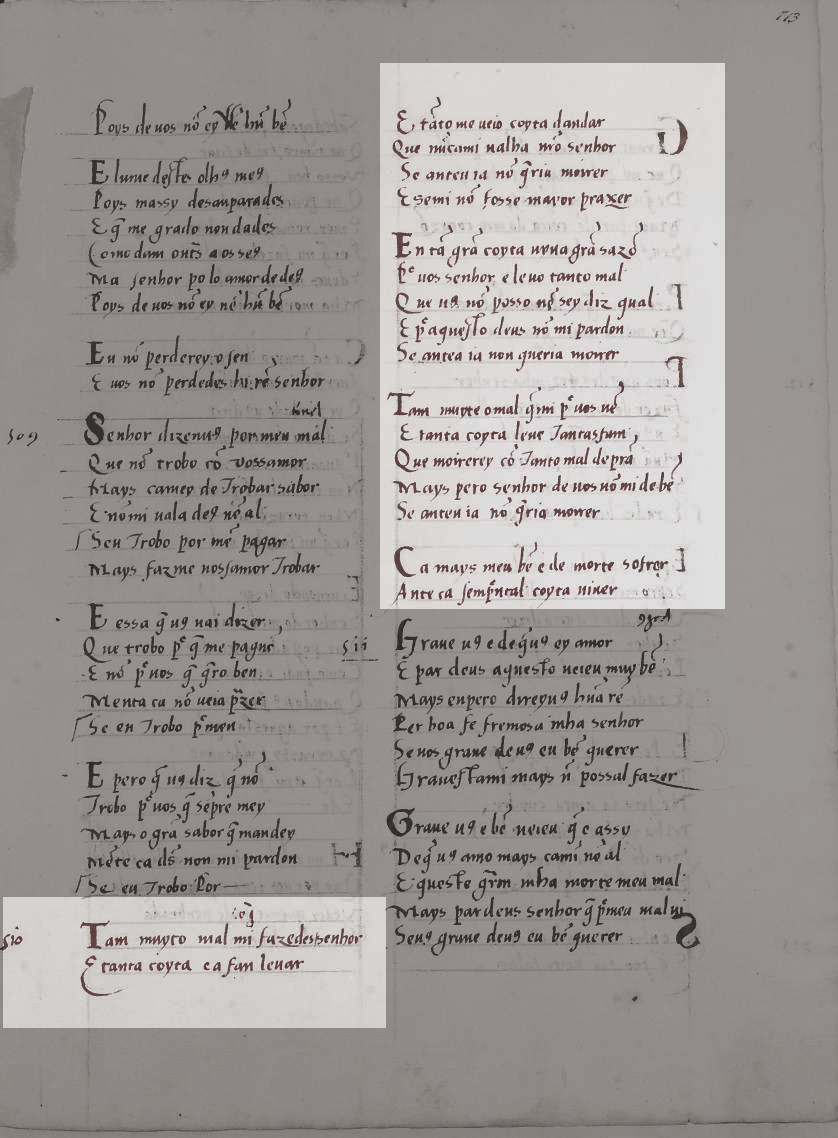 713
Poys de uos nō ey nē hūu bē
E lume destes olhꝯ meꝯ
Poys massy desanparades
E q̄ me grado non dades
Comodam outs̄ aosseꝯ
Ma senhor polo amor de deꝯ
Poys de uos nō ey nē hūu bē
Eu nō perderey o sen
E uos nō perdedes hi rē senhor
509
Senhor dizenuꝯ por meu mal
Que nō trobo cō uossamor
Mays camey de Trobar sabor
E nō mi uala deꝯ nē al
Seu Trobo por mē pagar
Mays faz me uossamor Trobar
E essa q̄ uꝯ uai dizer
Que trobo p̄ q̄ me pague
E nō p̄ uos q̄ q̄ro ben
Menta ca nō ueia p̄zer
Se eu Trobo p̄ men
E pero q̄ uꝯ diz q̄ nō
Trobo p̄ uos q̄ sēpre mey
Mays o grā sabor q̄ mandey
Mēte ca dš non mi pardon
Se eu Trobo Por
510
Tam muyto mal mi fazedes senhor
E tanta coyta e afan leuar
E tāto me ueio coyta dandar
Que nūcami ualha nr̄o senhor
Se anteu ia nō q̄ria moirer
E semi nō fosse mayor prazer
En tā grā coyta uyuagrā sazō
Pᵉ uos senhor e leuo tanto mal
Que uꝯ nō posso nē sey diz qual
E p̄ aquesto deus nō mi pardon
Se antea ia non queria moirer
Tam muyte o mal q̄mi p̄ uos uē
E tanta coyta leue Tantasfum
Que moirerey cō Tanto mal de prā
Mays pero senhor de uos uō mi de bē
Se anteu ia nō q̄ria moirer
Ca mays meu bē e de morte sofrer
Ante ca semp̄ntal coyta uiuer
511
Graue uꝯ e deq̄uꝯ ey amor
E par deus aquesto ueieu muy bē
Mays enpero direyuꝯ hūa rē
Per boa fe fremosa mha senhor
Se uos graue de uꝯ eu bē querer
Grauestami mays n̄ possal fazer
Graue uꝯ e bē ueieu q̄ e assy
Deq̄ uꝯ amo mays cami nē al
E queste gr̄m mha morte meu mal
Mays par deus senhor q̄ p̄ meu mal ui
Seuꝯ graue deuꝯ eu bē querer